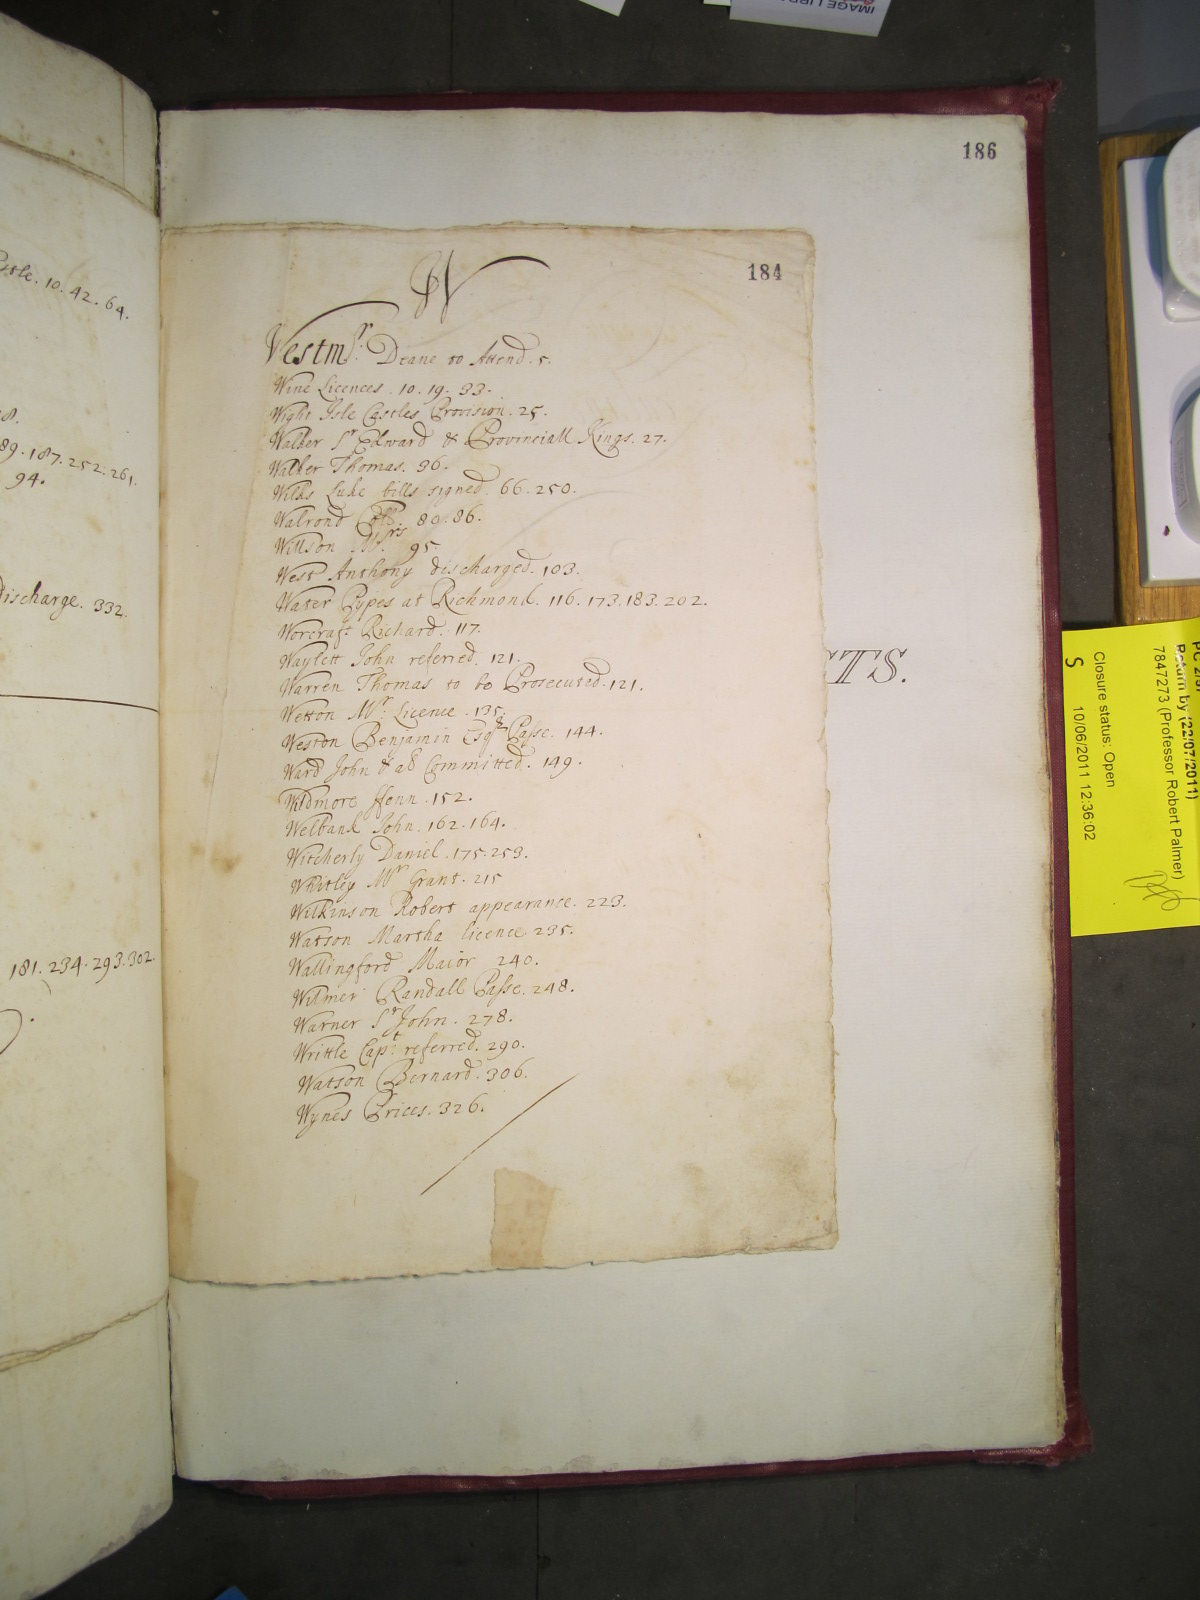 IMAGE LIBR
186
184
W
Westmr. Deane to Attend. 5.
Wine Licences. 10. 19. 33.
Wight Isle Castles Provision. 25.
Walker Sr. Edward & Provinciall Kings. 27.
Walker Thomas. 36.
Wilks Luke bills signed. 66. 250.
Walrond Coll. 80. 86.
Willson Mrs. 95.
West Anthony discharged. 103.
Water Pypes at Richmond. 116. 173. 183. 202.
Worcraft Richard. 117.
Waylett John referred. 121.
Warren Thomas to be Prosecuted. 121.
Wetton Mr. Licence. 135.
Weston Benjamin Esqr. Passe. 144.
Ward John & al Committed. 149.
Widmore ffenn. 152.
Welbank John. 162. 164.
Witcherly Daniel. 175. 253.
Whitley Mr. Grant. 215
Wilkinson Robert appearance. 223.
Watson Martha licence. 235.
Wallingford Maior 240.
Wilmer Randall Passe. 248.
Warner Sr. John. 278.
Writtle Capt. referred. 290.
Watson Bernard. 306.
Wynes Prices. 326.
stle. 10. 42. 64.
18.
89. 187. 252. 261.
94.
discharge. 332.
181. 234. 293. 302.
CTS.
Return by (22/07/2011)
7847273 (Professor Robert Palmer)
Closure status: Open
S 10/06/2011 12:36:02